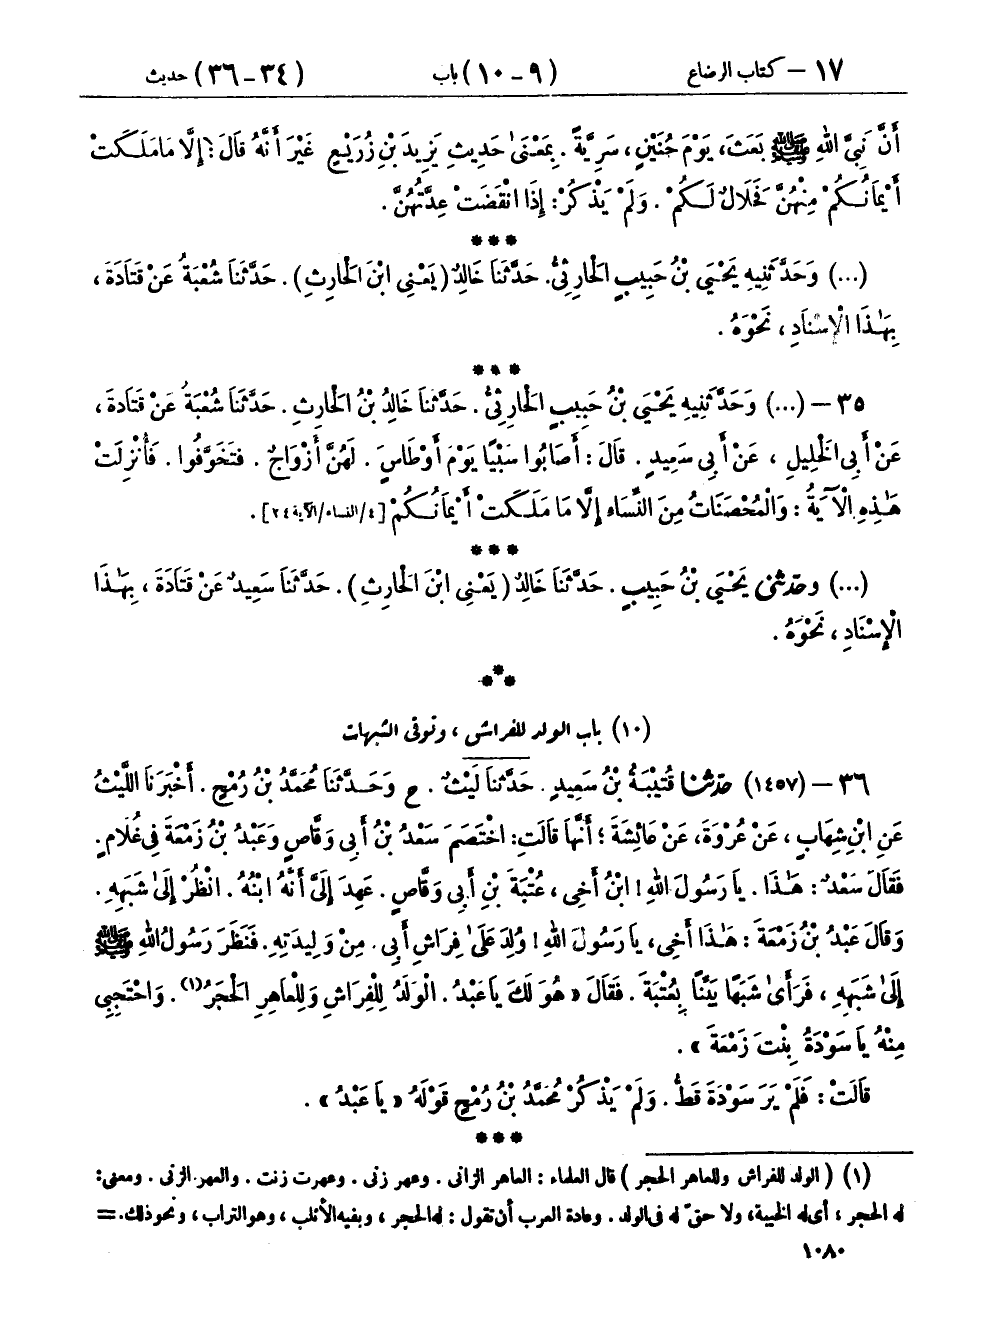 ١٧ – كتاب الرضاع (٩ – ١٠) باب (٣٤ – ٣٦) حديث
أَنَّ نَبِيَّ اللهِ ﷺ بَعَثَ، يَوْمَ حُنَيْنٍ، سَرِيَّةً. بِمَعْنَىٰ حَدِيثِ يَزِيدَ بْنِ زُرَيْعٍ غَيْرَ أَنَّهُ قَالَ: إِلَّا مَا مَلَكَتْ
أَيْمَانُكُمْ مِنْهُنَّ فَحَلَالٌ لَكُمْ. وَلَمْ يَذْكُرْ: إِذَا انْقَضَتْ عِدَّتُهُنَّ.
***
(...) وَحَدَّثَنِيهِ يَحْيَىٰ بْنُ حَبِيبٍ الْحَارِثِيُّ. حَدَّثَنَا خَالِدٌ (يَعْنِي ابْنَ الْحَارِثِ). حَدَّثَنَا شُعْبَةُ عَنْ قَتَادَةَ،
بِهَٰذَا الْإِسْنَادِ، نَحْوَهُ.
***
٣٥ – (...) وَحَدَّثَنِيهِ يَحْيَىٰ بْنُ حَبِيبٍ الْحَارِثِيُّ. حَدَّثَنَا خَالِدُ بْنُ الْحَارِثِ. حَدَّثَنَا شُعْبَةُ عَنْ قَتَادَةَ،
عَنْ أَبِي الْخَلِيلِ، عَنْ أَبِي سَعِيدٍ. قَالَ: أَصَابُوا سَبْيًا يَوْمَ أَوْطَاسٍ. لَهُنَّ أَزْوَاجٌ. فَتَخَوَّفُوا. فَأُنْزِلَتْ
هَٰذِهِ الْآيَةُ: وَالْمُحْصَنَاتُ مِنَ النِّسَاءِ إِلَّا مَا مَلَكَتْ أَيْمَانُكُمْ [٤/النساء/الآية ٢٤].
***
(...) وحَدَّثَنِي يَحْيَىٰ بْنُ حَبِيبٍ. حَدَّثَنَا خَالِدٌ (يَعْنِي ابْنَ الْحَارِثِ). حَدَّثَنَا سَعِيدٌ عَنْ قَتَادَةَ، بِهَٰذَا
الْإِسْنَادِ، نَحْوَهُ.
***
(١٠) باب الولد للفراش، وتوقي الشبهات
٣٦ – (١٤٥٧) حَدَّثَنَا قُتَيْبَةُ بْنُ سَعِيدٍ. حَدَّثَنَا لَيْثٌ. ح وَحَدَّثَنَا مُحَمَّدُ بْنُ رُمْحٍ. أَخْبَرَنَا اللَّيْثُ
عَنِ ابْنِ شِهَابٍ، عَنْ عُرْوَةَ، عَنْ عَائِشَةَ؛ أَنَّهَا قَالَتِ: اخْتَصَمَ سَعْدُ بْنُ أَبِي وَقَّاصٍ وَعَبْدُ بْنُ زَمْعَةَ فِي غُلَامٍ.
فَقَالَ سَعْدٌ: هَٰذَا. يَا رَسُولَ اللهِ! ابْنُ أَخِي، عُتْبَةَ بْنِ أَبِي وَقَّاصٍ. عَهِدَ إِلَيَّ أَنَّهُ ابْنُهُ. انْظُرْ إِلَىٰ شَبَهِهِ.
وَقَالَ عَبْدُ بْنُ زَمْعَةَ: هَٰذَا أَخِي، يَا رَسُولَ اللهِ! وُلِدَ عَلَىٰ فِرَاشِ أَبِي. مِنْ وَلِيدَتِهِ. فَنَظَرَ رَسُولُ اللهِ ﷺ
إِلَىٰ شَبَهِهِ، فَرَأَىٰ شَبَهًا بَيِّنًا بِعُتْبَةَ. فَقَالَ « هُوَ لَكَ يَا عَبْدُ. الْوَلَدُ لِلْفِرَاشِ وَلِلْعَاهِرِ الْحَجَرُ(١). وَاحْتَجِبِي
مِنْهُ يَا سَوْدَةُ بِنْتَ زَمْعَةَ ».
قَالَتْ: فَلَمْ يَرَ سَوْدَةَ قَطُّ. وَلَمْ يَذْكُرْ مُحَمَّدُ بْنُ رُمْحٍ قَوْلَهُ « يَا عَبْدُ ».
***
(١) (الولد للفراش وللعاهر الحجر) قال العلماء: العاهر الزاني. وعهر زنى. وعهرت زنت. والعهر الزنى. ومعنى:
له الحجر، أي له الخيبة، ولا حقّ له في الولد. وعادة العرب أن تقول: له الحجر، وبفيه الأثلب، وهو التراب، ونحو ذلك. =
١٠٨٠